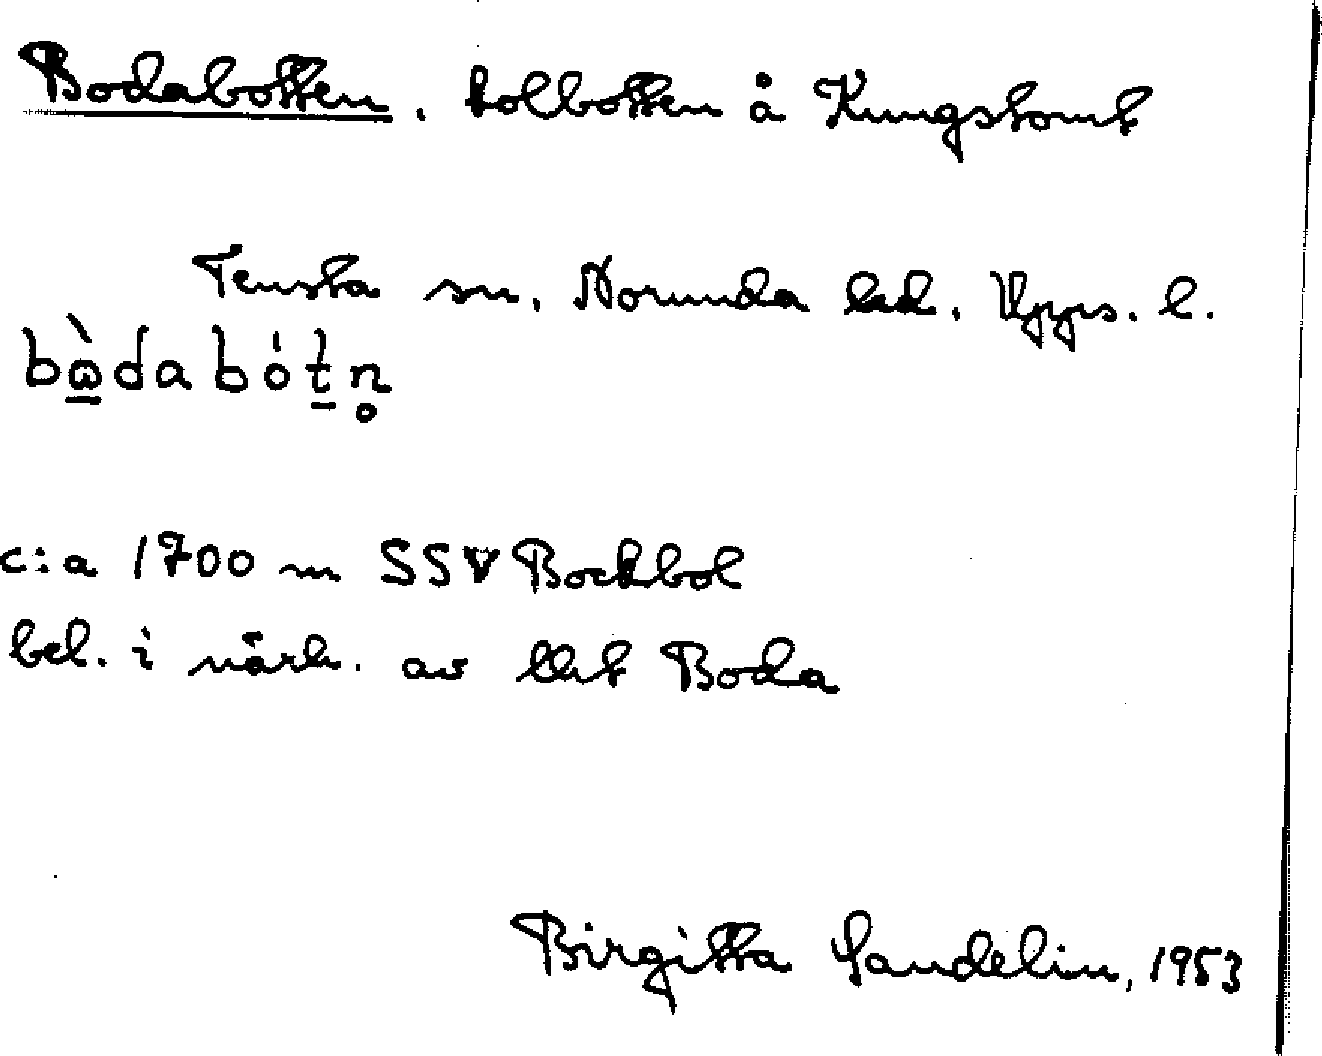 Bodabotten, kolbotten å Kungstomt
Tensta sn. Norunda hd. Upps. l.
bὼda bót̠n̥
c:a 1700 m SSV Bockbol
bel. i närh. av tpt Boda
Birgitta Sandelin, 1953